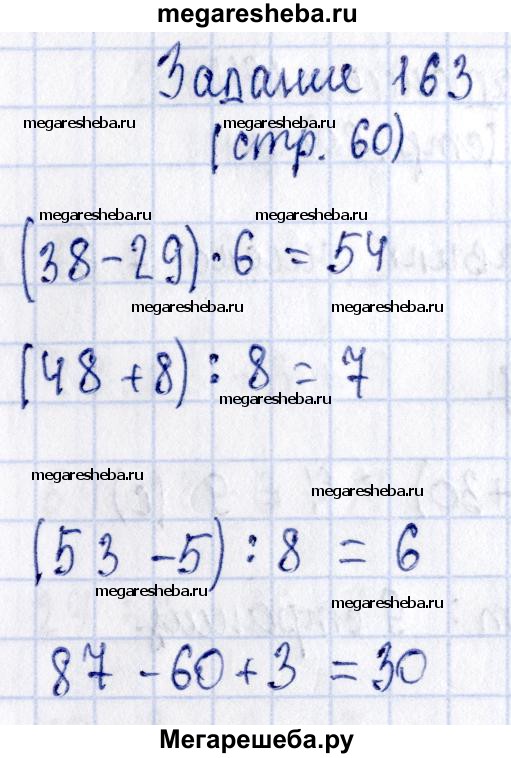 megaresheba.ru
Задание 163
megaresheba.ru megaresheba.ru
(стр. 60)
megaresheba.ru megaresheba.ru
(38-29)·6=54
megaresheba.ru megaresheba.ru
(48+8):8=7
megaresheba.ru
megaresheba.ru megaresheba.ru
(53-5):8=6
megaresheba.ru megaresheba.ru
87-60+3=30
Мегарешеба.ру